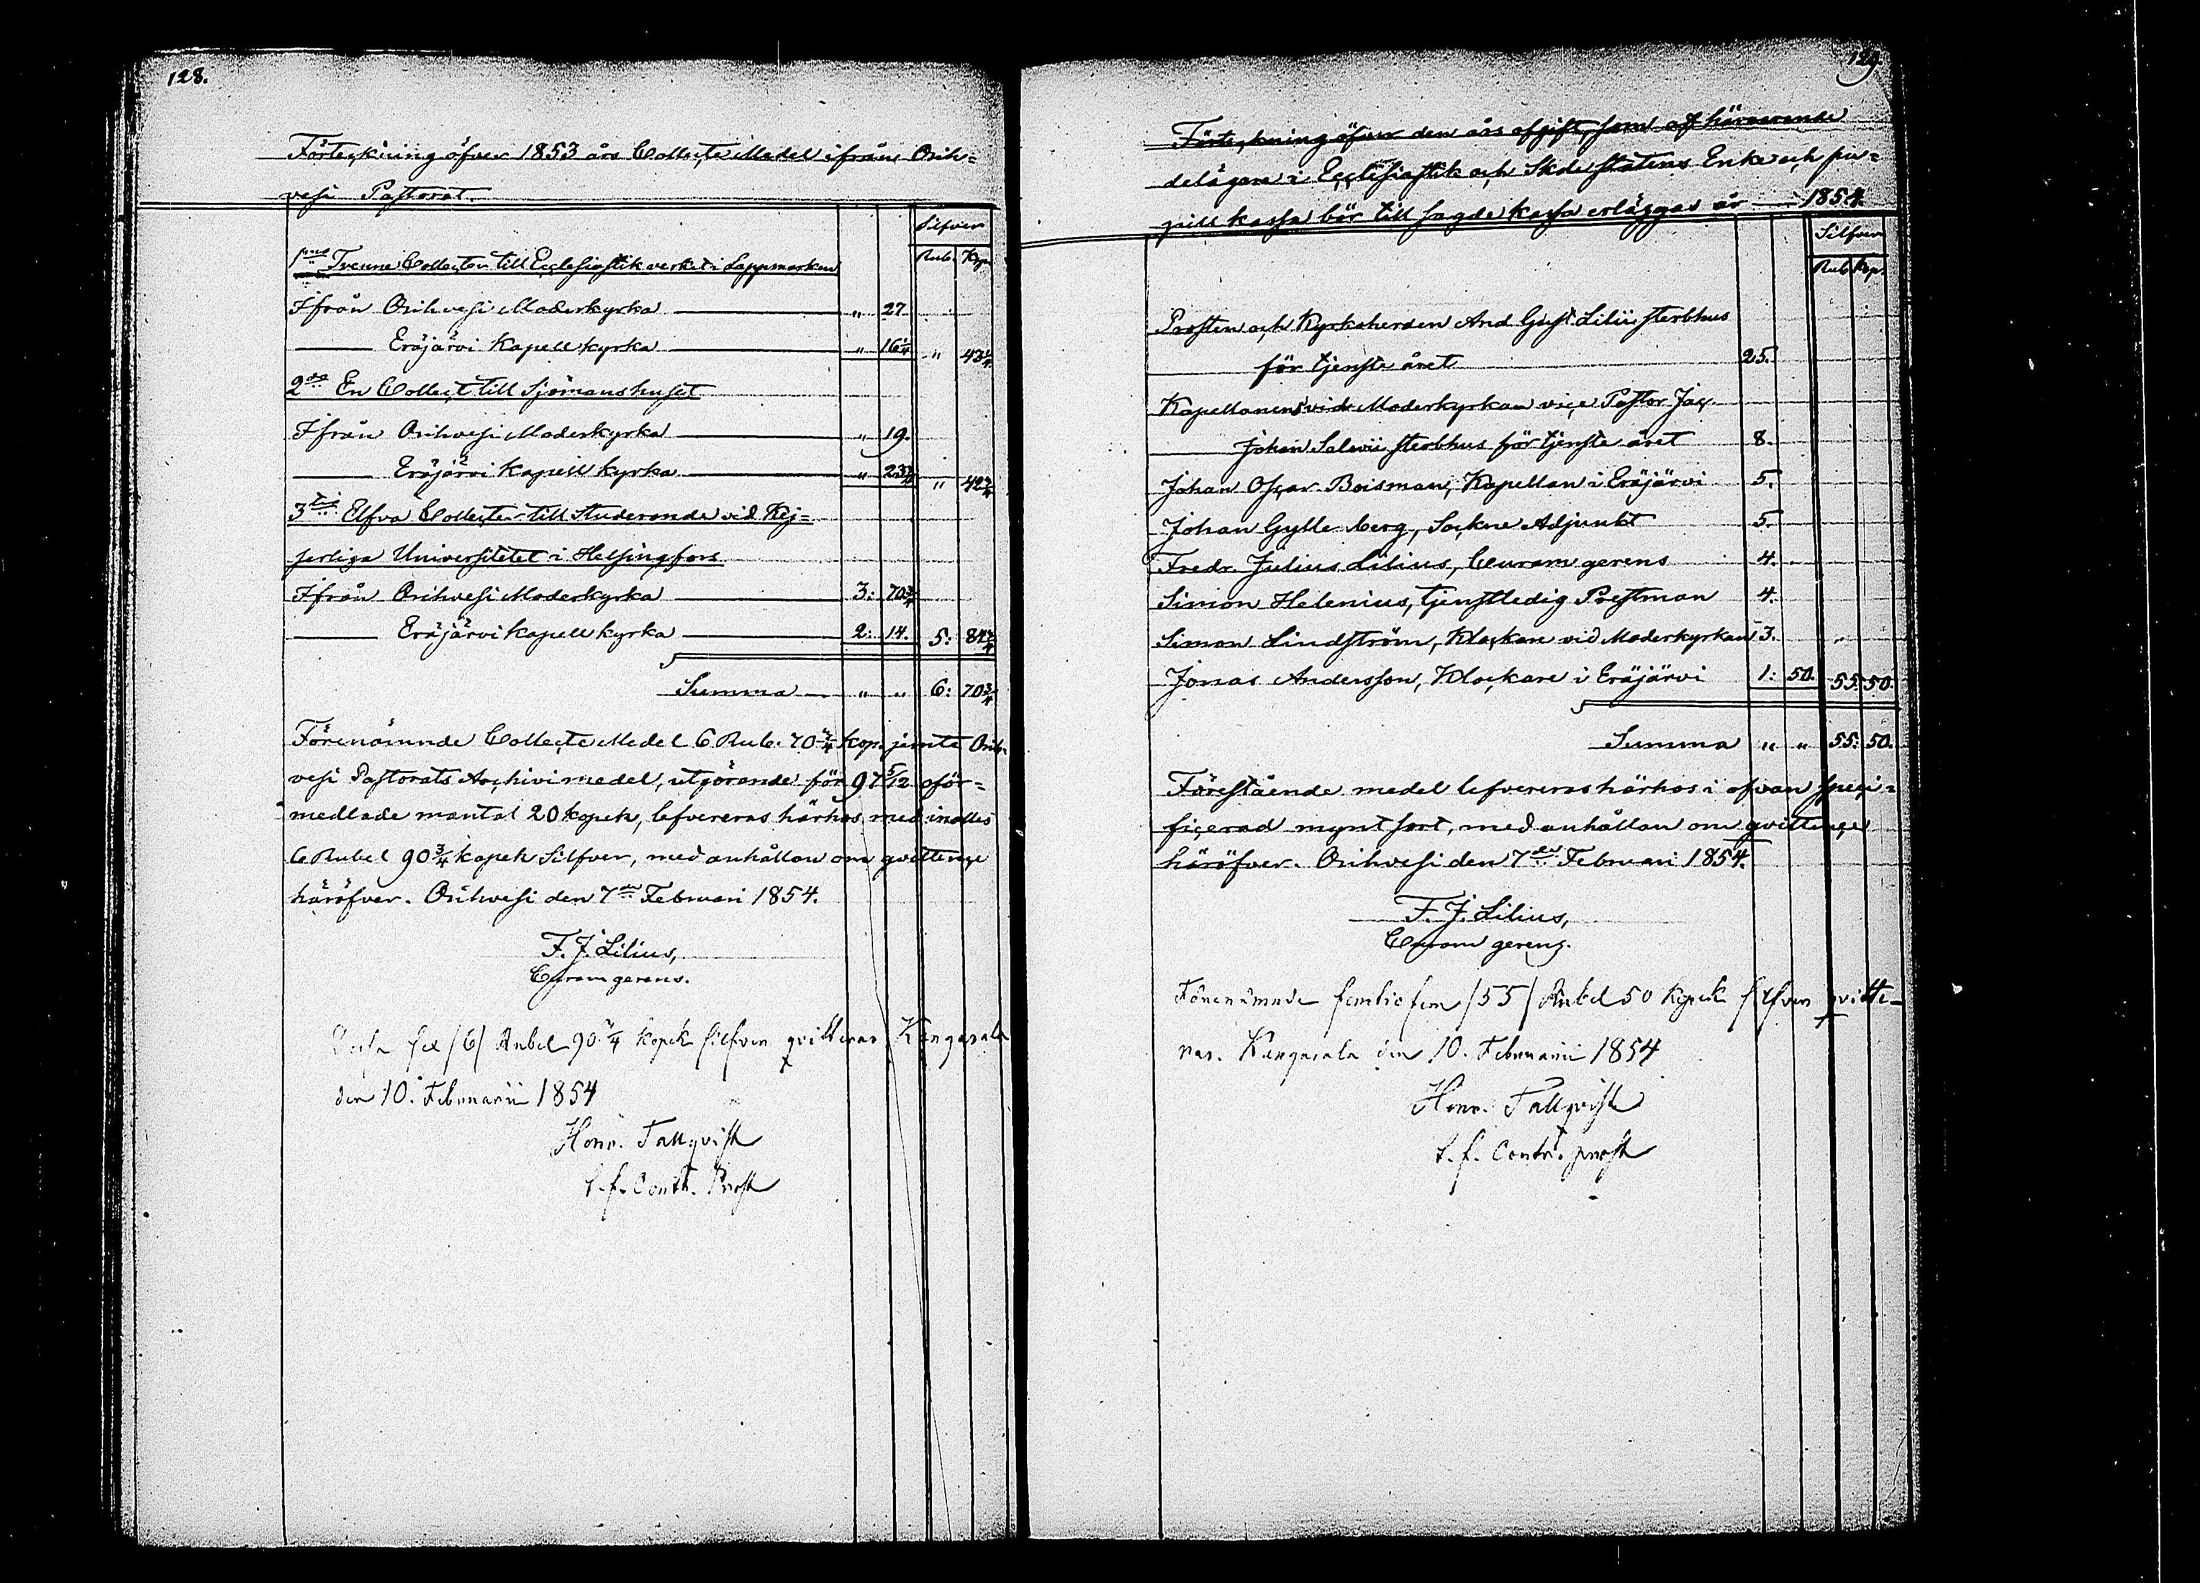 128.
Förteckning öfver 1853 års Collecte Medel ifrån Orih=
vesi Pastorat.
Silfver
Rub. Kop.
1mo Tvenne Collecter till Ecclesiastik verket i Lappmarken
Ifrån Orihvesi Moderkyrka " 27
Eräjärvi Kapell kyrka " 16 1/4 " 43 1/4
2do En Collect till Sjömanshuset
Ifrån Orihvesi Moderkyrka " 19.
Eräjärvi Kapell kyrka " 23 3/4 " 42 3/4
3tio Elfva Collecter till Studerande vid Kej=
serliga Universitetet i Helsingfors
Ifrån Orihvesi Moderkyrka 3: 70 3/4
Eräjärvi Kapell kyrka 2: 14. 5: 84 3/4
Summa " " 6: 70 3/4
Förenämnde Collecte Medel 6 Rub. 70 3/4 kop. jemte Orih-
vesi Pastorats Archivi medel, utgörande för 97 5/12 oför=
medlade mantal 20 kopek, lefvereras härhos med inalles
6 Rubel 90 3/4 kopek Silfver, med anhållan om qvittence
häröfver. Orihvesi den 7de Februari 1854.
F. J. Lilius,
Curam gerens.
sex /6/ Rubel 90 3/4 kopek silfver qvitteras Kangasala
den 10. Februarii 1854
Honr. Tallqvist
t. f. Contr. Prost
129
Förteckning öfver den års afgift, som af härvarande
delägare i Ecclesiastik och Skole statens Enke och pu=
pill kassa bör till sagde kassa erläggas år 1854.
Silfver
Rub. Kop.
Prosten och Kyrkoherden And. Gust. Lilii sterbhus
för tjenste året 25.
Kapellanens vid Moderkyrkan vice Pastor Jac.
Johan Salovii sterbhus för tjenste året 8.
Johan Oscar Boisman, Kapellan i Eräjärvi 5.
Johan Gyllenberg, Sockne Adjunkt 5.
Fredr. Julius Lilius, Curam gerens 4.
Simon Helenius, tjenstledig Prestman 4.
Simon Lindström, Klockare vid Moderkyrkan 3.
Jonas Andersson, Klockare i Eräjärvi 1: 50. 55: 50.
Summa " " 55: 50.
Förestående medel lefvereras härhos i ofvan speci=
ficerad mynt sort, med anhållan om qvittence
häröfver. Orihvesi den 7de Februari 1854.
F. J. Lilius,
Curam gerens.
Förenämnde femtiofem /55/ Rubel 50 kopek silfver qvitte-
ras. Kangasala den 10. Februarii 1854
Honr. Tallqvist
t. f. Contr. prost